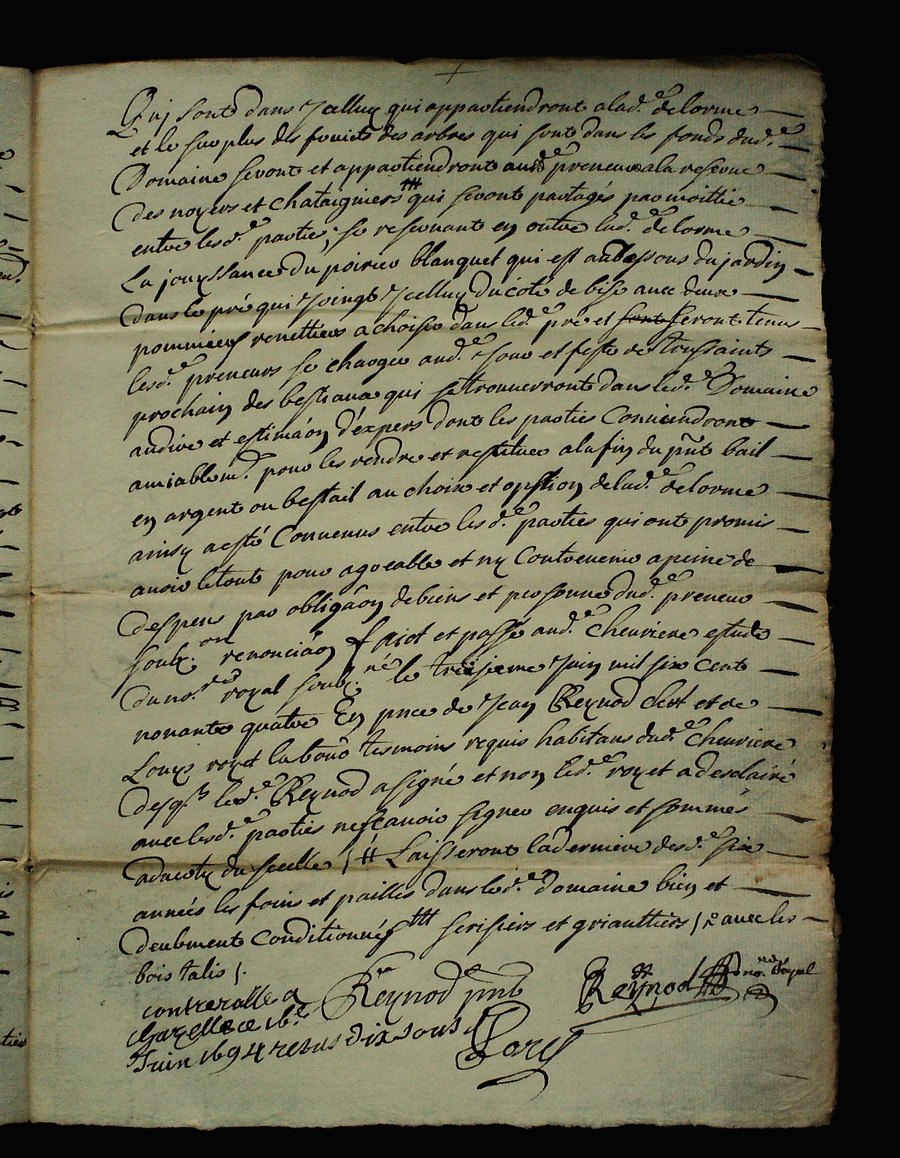 Quj sont dans Jcelluy qui appartiendront a lad.e delorme
et le surplus des fruicts des arbres qui sont dans les fonds dud.e
Domaine seront et appartiendront aud.e preneur a la reserue
des noyers et chataigniers ttt qui seront partagés par moittie
entre lesd.e parties, se reseruant en outre lad.e delorme
La jouyssance du poirier blanquet qui est au dessous du jardin
Dans le pré qui Joingt Jcelluy du coté de bise auec deux
pommiers renettiers a choisir dans led.e pré et seront tenus
lesd.e preneurs se charger aud.e jour et feste de toussaints
prochain des bestiaux qui se trouuerront dans led.e Domaine
au dire et estimaon d'expers dont les parties Conuiendront
amiablem.t pour les rendre et restituer a la fin du pnt bail
en argent ou bestail au choix et option de lad.e delorme
ainsy a esté Conuenus entre lesd.e parties qui ont promis
auoir le tout pour agreable et ny Contreuenir a peine de
despens par obligaon de biens et personne dud.e preneur
soub.on renonciaon faict et passé aud.e cheuriere estude
du no.re royal soub.né le treisieme Juin mil six cent
nonante quatre En pnce de Jean Reynod clert et de
Louys royet labour tesmoins requis habitans dud.e cheuriere
desq.ls led.e Reynod a signé et non led.e royet a desclairé
auec lesd.e parties ne scauoir signer enquis et sommés
adue du scelle / tt Laisseront la derniere desd.e six
années les foins et pailles dans led.e domaine bien et
deubment Conditionnés ttt serisiers et griauttiers / auec les
bois talis /.
contrerolle a Reynod pnt Reynod no.re Royal
chazelle ce 16.e
Juin 1694 receus dix sous